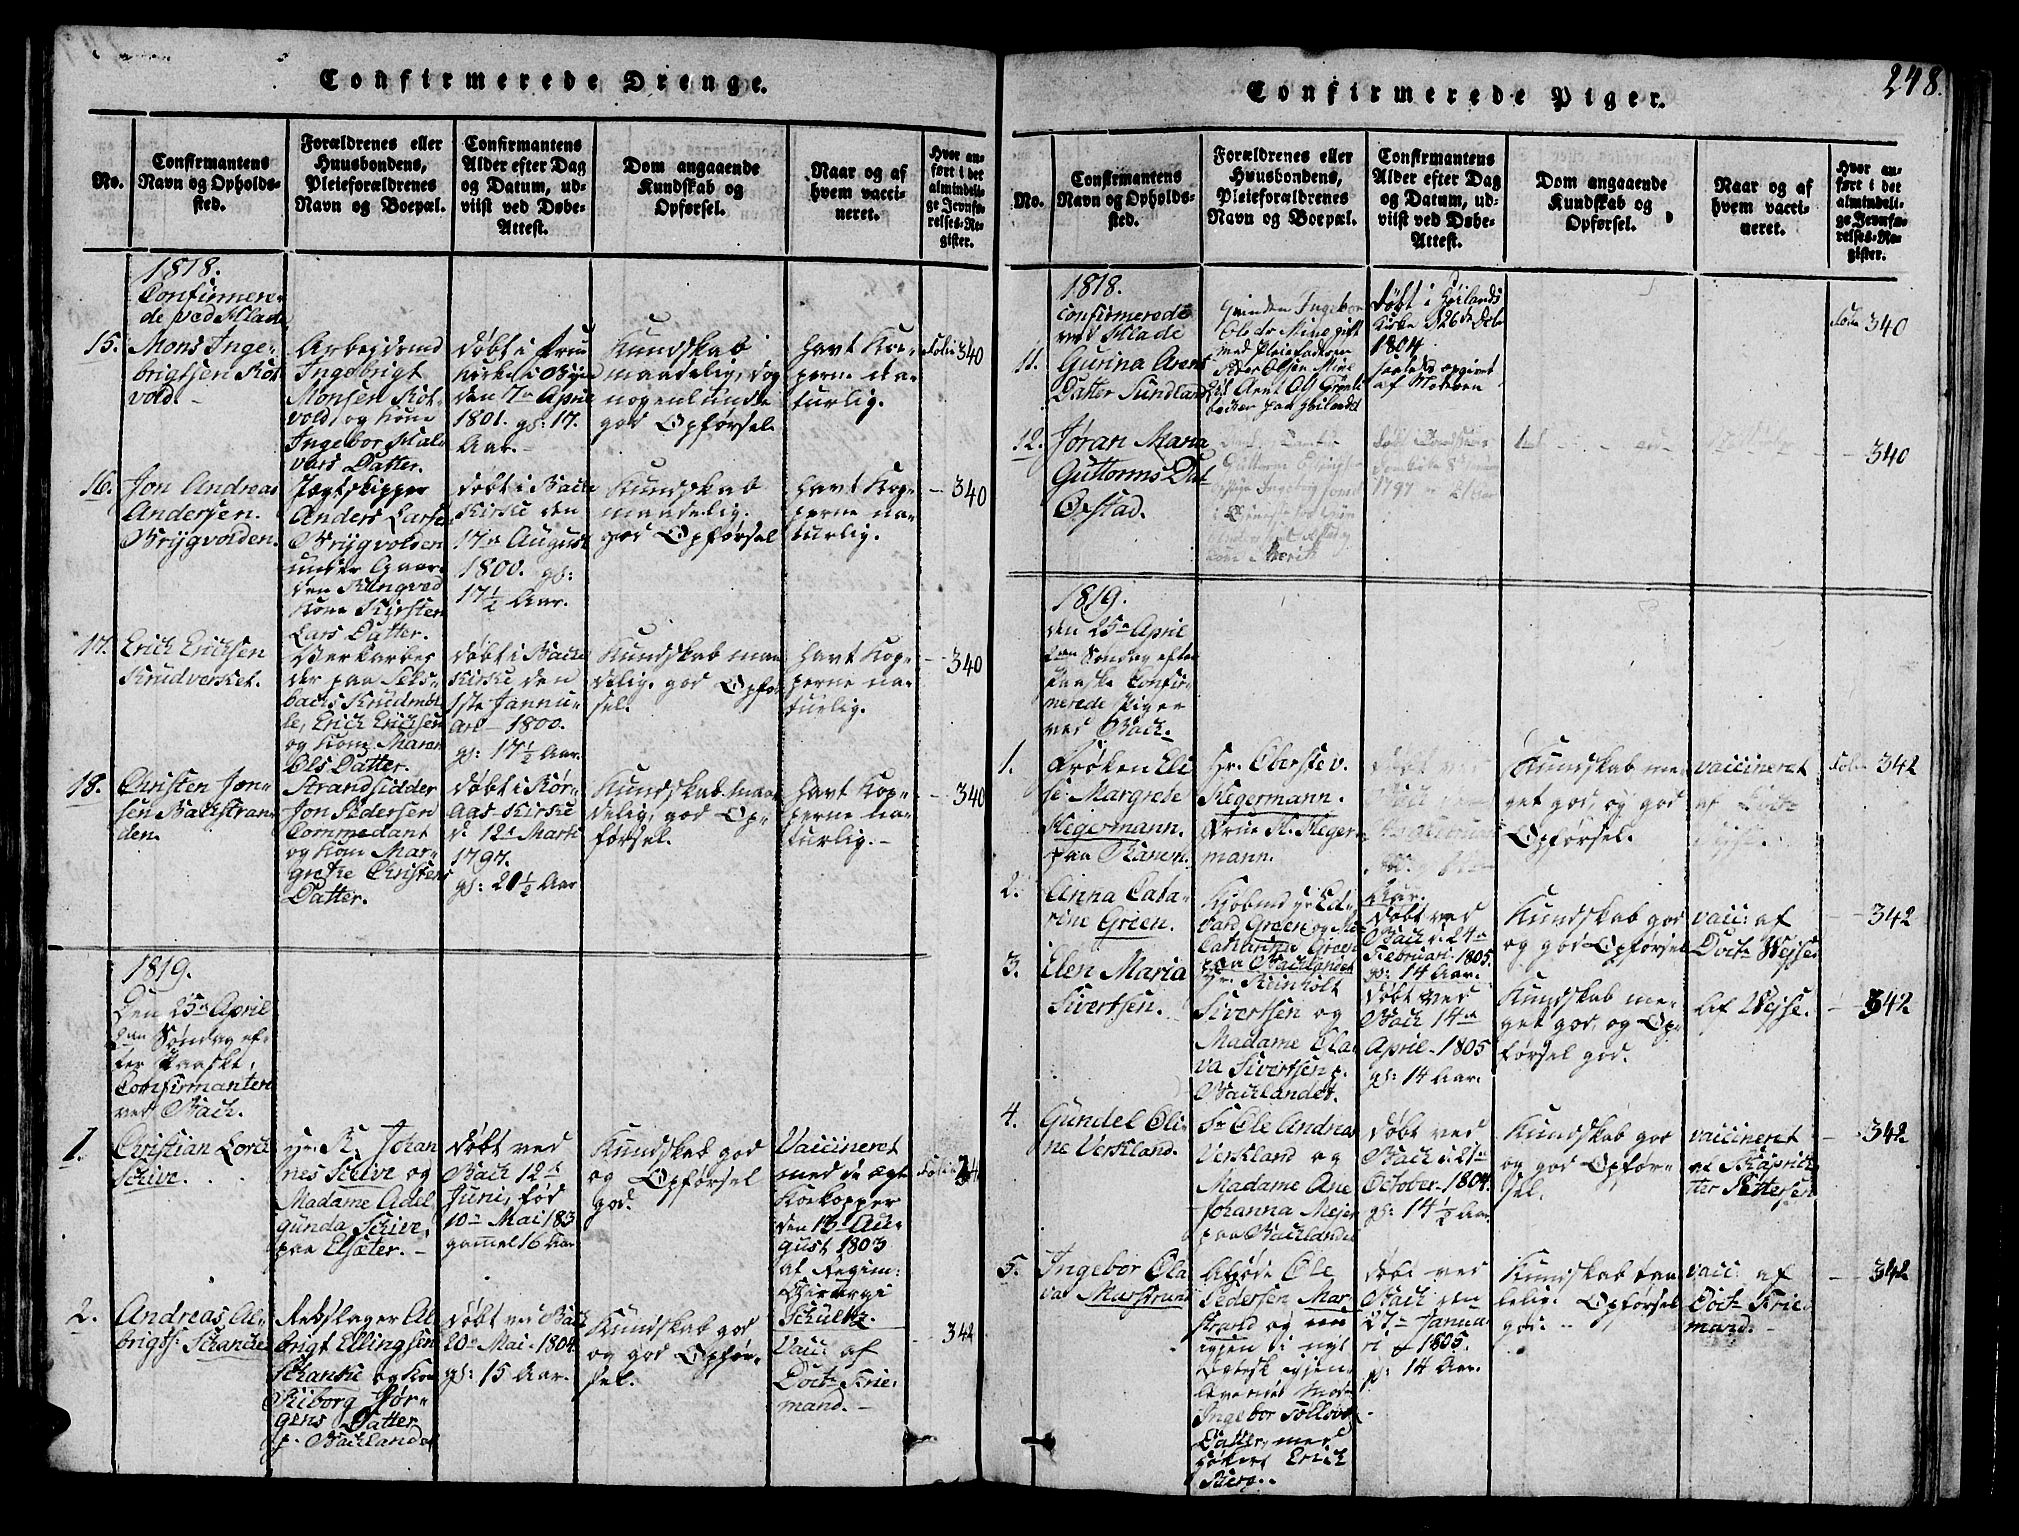 Confirmerede Drenge.
No.
Confirmantens
Navn og Opholds-
sted.
Forældrenes eller
Huusbondens,
Pleieforældrenes
Navn og Boepæl.
Confirmantens
Alder efter Dag
og Datum, ud-
viist ved Døbe-
Attest.
Dom angaaende
Kundskab og
Opførsel.
Naar og af
hvem vacci-
neret.
Hvor an-
ført i det
almindeli-
ge Jevnfø-
relses-Re-
gister.
1818.
Confirmere-
de ved Hlade
15. Mons Inge-
brigtsen Rot-
vold.
Arbejdsmd
Ingebrigt
Monsen Rot-
vold, og Kone
Ingebor Hal-
vars Datter.
døbt i Frue
Kirke i Byen
den 7de April
1801. gl: 17.
Aar.
Kundskab
maadelig, dog
nogenlunde
god Opførsel
havt Ko-
perne na-
turlig.
Folio 340
16. Jon Andreas
Andersen.
Brygvolden.
Jægtskipper
Anders Larsen
Brygvolden
under Gaar-
den Ringved
Kone Kirsten
Lars Datter.
døbt i Bache
Kirke den
17de August
1800. gl:
17½ Aar.
Kundskab
maadelig.
god Opførsel
havt Kop-
perne na-
turlig.
340
17. Erich Erichsen
Knudverket.
Verkarbei-
der paa Sels-
bachs Knudmøl-
le, Erich Erichsen
og Kone Maren
Ols Datter.
døbt i Bache
Kirke den
1ste Januu-
ari 1800.
gl: 17½ Aar.
Kundskab maa-
delig. god Opfør-
sel.
havt Kop-
perne na-
turlig.
340
18. Christen Jon-
sen Bachstran-
den.
Strandsidder
Jon Pedersen
Commedant
og Kone Mar-
grethe Christens
Datter.
døbt i Rør-
aas Kirke
d 12te Marti
1797.
gl: 21½ Aar
Kundskab maa-
delig, god Op-
førsel.
havt Kop-
perne na-
turlig.
340
1819.
Den 25de April
2den Søndag ef-
ter Paaske,
Confirmanter
ved Bach.
1. Christian Lorck
Schive.
Hr. K. Johan
nes Schive og
Madame Adel
gunda Schive,
paa Elsæter.
døbt ved
Bach 12te
Juni, fød
10de Mai 1803
gammel 16 Aar
Kundskab god
og Opførsel
god.
Vaccineret
med de ægte
Kokopper
den 13de Au-
gust 1803
af Regim:
Chirurgi
Schultz.
Folio 34
2. Andreas Al-
brigts: Schanke
Rebslager Al-
brigt Ellingsen
Schanke og Kone
Riborg Jør-
gens Datter
p. Bachlandet
døbt ved Bach
20de Mai 1804
gl: 15 Aar.
Kundskab god
og god Opfør-
sel.
Vacc: af
Doctr Krie-
mand.
342
248.
Confirmerede Piger.
No.
Confirmantens
Navn og Opholds-
sted.
Forældrenes eller
Huusbondens,
Pleieforældrenes
Navn og Boepæl.
Confirmantens
Alder efter Dag
og Datum, ud-
viist ved Døbe-
Attest.
Dom angaaende
Kundskab og
Opførsel.
Naar og af
hvem vacci-
neret.
Hvor an-
ført i det
almindeli-
ge Jevnfø-
relses-Re-
gister.
1818.
Confirmerede
ved Hlade
11. Gurina Arent
Datter Sundland
Qvinden Ingebor
Olsdr Mine gift
med Pleiefaderen
Peder Olsen Mine
Arent
døbt i Høilands
Kirke 26de Octbr
1804
saaledes opgivet
af Moderen
Folio 340
12. Jøran Maria
Guttorms Dat
Ørstad.
Guttorm
Ingeborg
Kone Marit
1797
340
1819.
den 25de April
2den Søndag efter
Paaske Confir-
merede Piger
ved Bach.
1. Frøken Eli-
se Margrete
Hegermann.
paa Ranem.
Hr. Oberste v.
Hegermann.
Frue H. Heger-
mann.
døbt ved
Bach
Aar.
Kundskab me-
get god, og god
Opførsel.
vaccineret
af Doctr
Folio 342
2. Anna Cata-
rine Green.
Kjøbmd Hr Ed-
vard Green og M:
Catharina Green
paa Bachlandet
døbt ved
Bach d. 24de
Februari 1805.
gl: 14 Aar.
Kundskab god
og god Opførsel
vacc: af
Doctr Wejse
342
3. Elen Maria
Sivertsen.
Hr. Reinholt
Sivertsen og
Madame Ola-
va Sivertsen p.
Bachlandet.
døbt ved
Bach 14de
April 1805
gl: 14 Aar.
Kundskab me-
get god, og Op-
førsel god.
af Wejse.
342
4. Gundel Oli-
ne Verkland.
Sr Ole Andreas
Verkland og
Madame Ane
Johanna Mejer
paa Bachlandet
døbt ved
Bach d. 21de
October 1804.
gl: 14½ Aar.
Kundskab god
og god Opfør-
sel.
vaccineret
af
Pettersen
342
5. Ingebor Ola-
va Marstrand
Afdøde Ole
Pedersen Mar-
strand og nu
igjen i nyt
Ægtesk igjen-
levende Mod.
Ingebor Tollovs
Datter, med
Høkert Erich
Berg.
døbt ved
Bach den
27de Janua-
ri 1805.
gl: 14 Aar.
Kundskab taa-
lelig. Opførsel
god.
vacc: af
Doctr Krie-
mand.
342